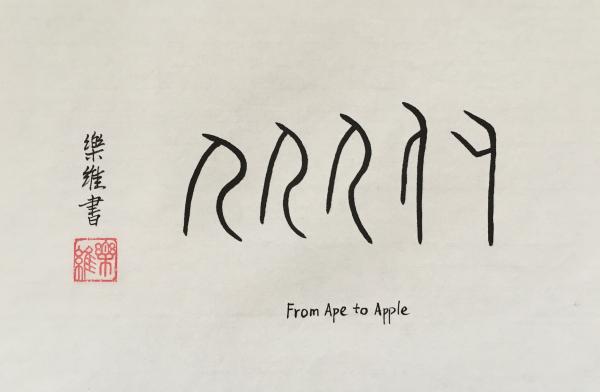 樂維書
樂維
From Ape to Apple